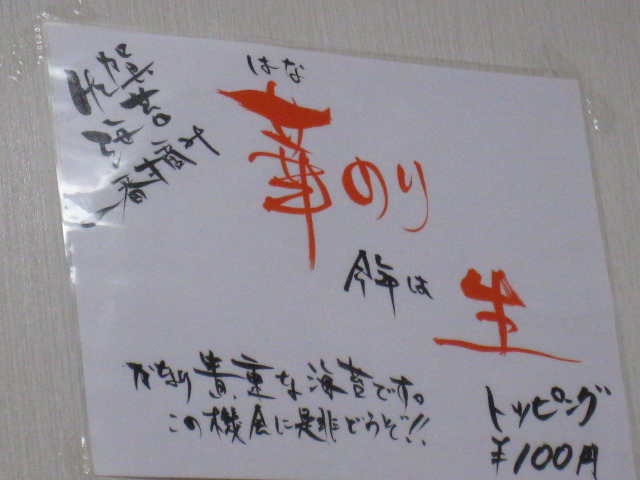 はな
華のり
今年は
生
かなり貴重な海苔です。
この機会に是非どうぞ!!
トッピング
¥100円